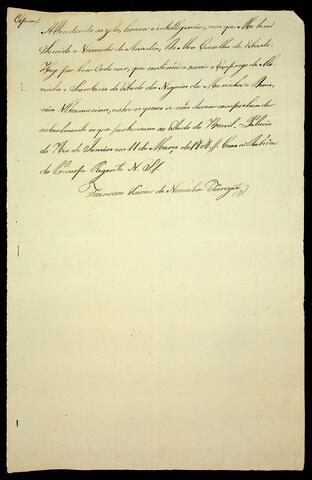 Copia
Attendendo ao zelo, honra e intelligencia, com que Me tem
Servido o Visconde de Anadia, do Meu Conselho de Estado.
Hey por bem Ordenar, que continue a servir o Emprego de Mi-
nistro e Secretario de Estado dos Negocios da Marinha e Domi-
nios Ultramarinos, entre os quaes se não devem comprehender
actualmente os que pertencerem ao Estado do Brasil. Palacio
do Rio de Janeiro em 11 de Março de 1808. Com a Rubrica
do Principe Regente N. Sr.
Francisco Xavier de Noronha Torrezão